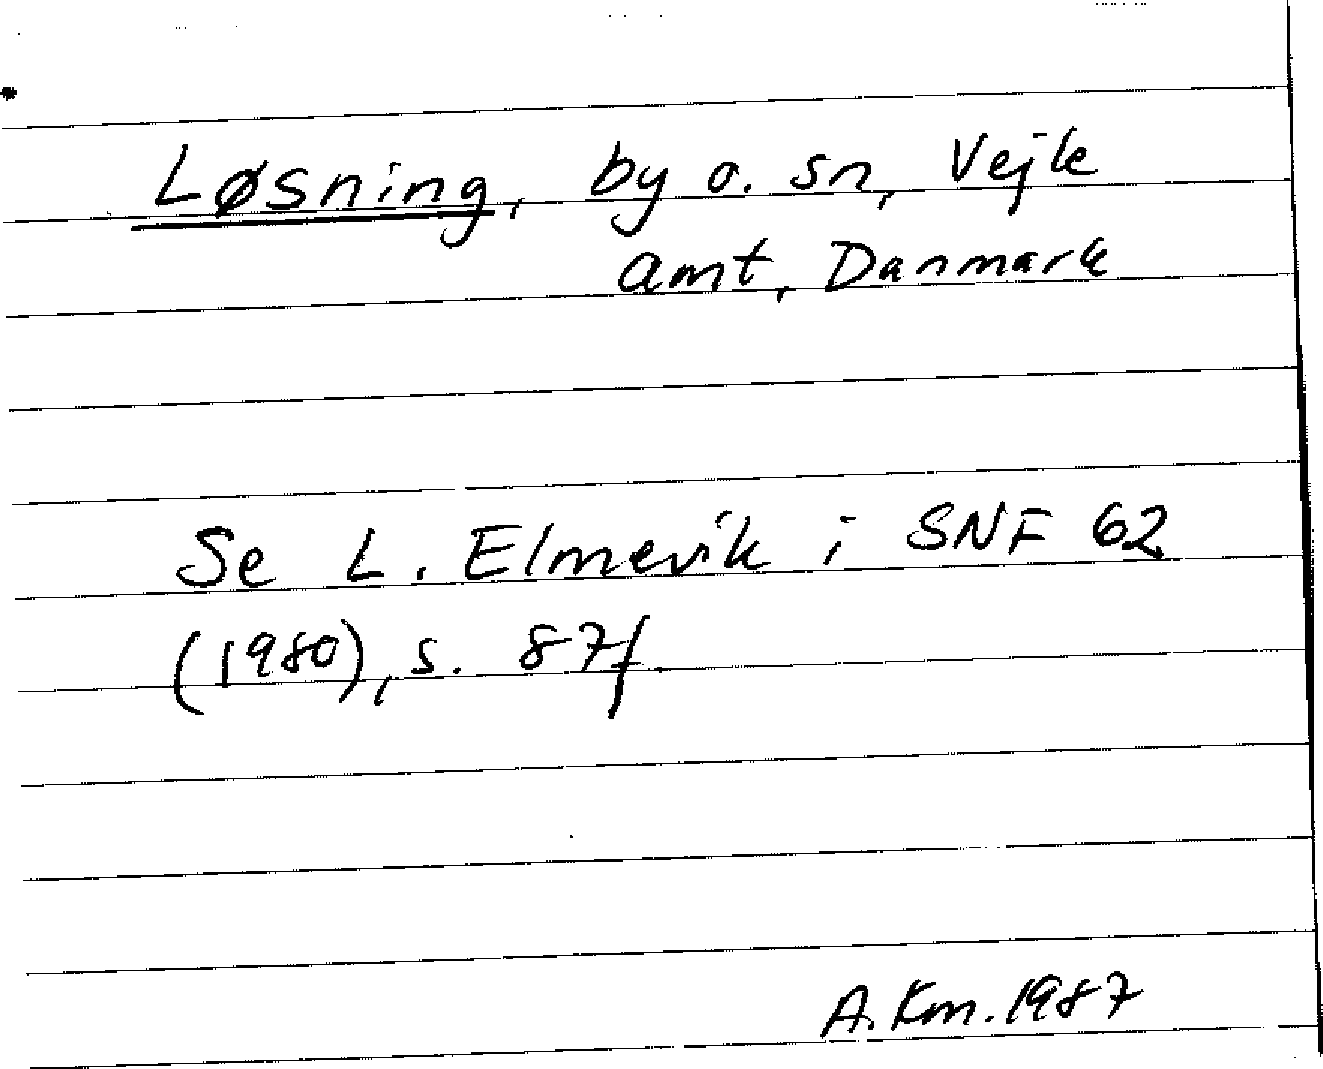 Løsning, by o. sn, Vejle
amt, Danmark
Se L. Elmevik i SNF 62
(1980), s. 87f.
A. Km. 1987